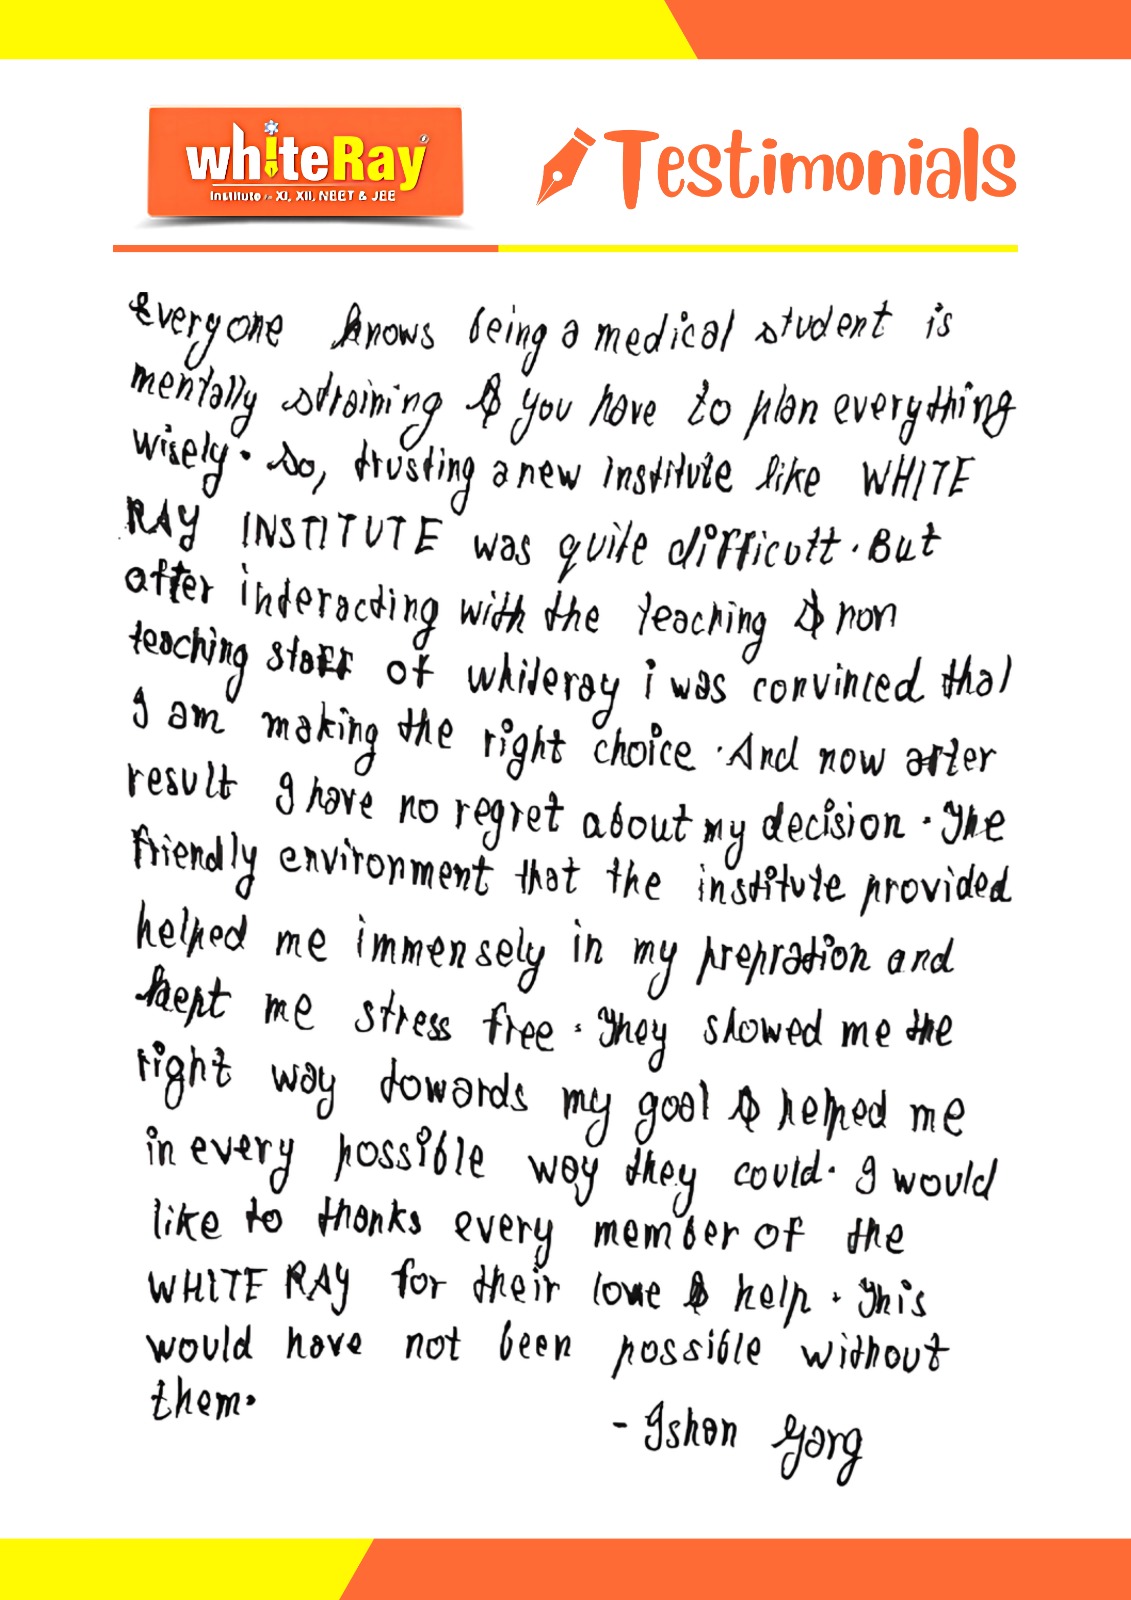 whiteRay
Institute for XI, XII, NEET & JEE
Testimonials
Everyone knows being a medical student is
mentally straining & you have to plan everything
wisely. So, trusting a new institute like WHITE
RAY INSTITUTE was quite difficult. But
after interacting with the teaching & non
teaching staff of whiteray i was convinced that
I am making the right choice. And now after
result I have no regret about my decision. The
friendly environment that the institute provided
helped me immensely in my prepration and
kept me stress free. They showed me the
right way towards my goal & helped me
in every possible way they could. I would
like to thanks every member of the
WHITE RAY for their love & help. This
would have not been possible without
them.
- Ishan Garg